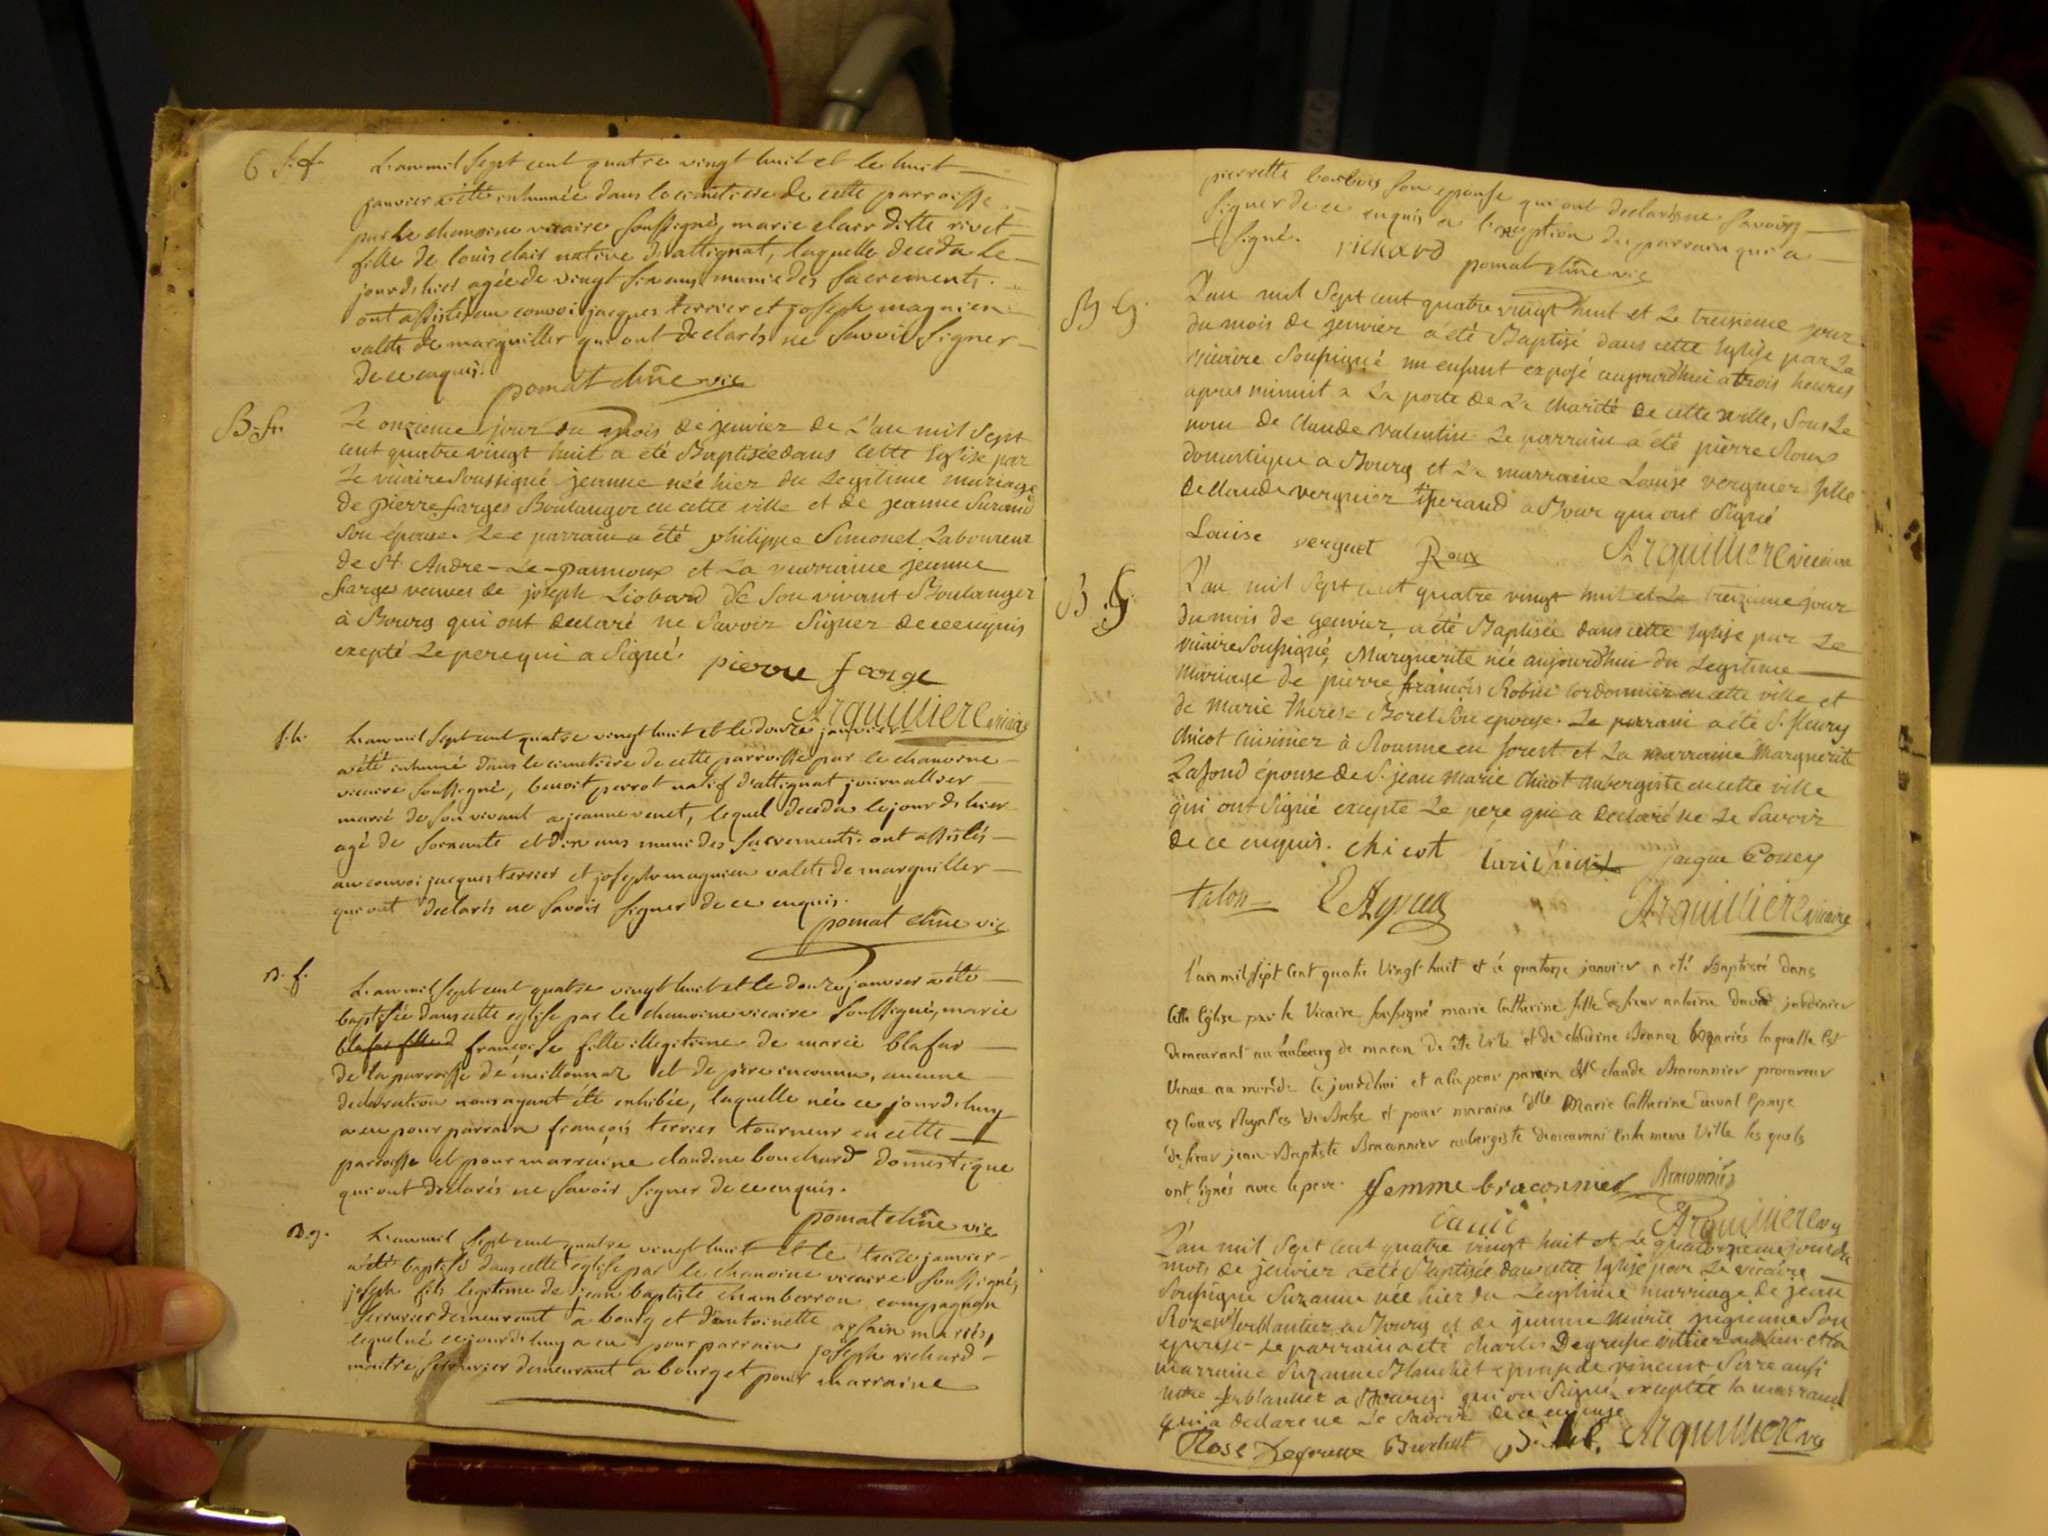 6 S. f.
L'an mil sept cent quatre vingt huit et le huit
janvier a été inhumée dans le cimetiere de cette parroisse
par le chanoine vicaire soussigné, marie clair ditte rivet
fille de louis clair native d'attignat, laquelle deceda le
jour d'hier agée de vingt six ans munie des sacrements.
ont assistés au convoi jacques terrier et joseph magnien
valets de marguiller qui ont declarés ne savoir signer
de ce enquis.
pomat chne vic
B. f.
Le onzieme jour du mois de jenvier de L'an mil sept
cent quatre vingt huit a été Baptisée dans cette Eglise par
Le vicaire soussigné jeanne née hier du Legitime mariage
de pierre farges Boulanger en cette ville et de jeanne
son épouse. Le parrain a été philippe Simonet Laboureur
de St André-Le-pannoux et La marraine jeanne
farges veuves de joseph Liobard de son vivant Boulanger
à Bourg qui ont declaré ne savoir signer de ce enquis
exepté Le pere qui a signé.
pierre farge
Arquilliere vicaire
S. h.
L'an mil sept cent quatre vingt huit et le douze janvier
a été inhumé dans le cimetiere de cette parroisse par le chanoine
vicaire soussigné, benoit perrot natif d'attignat journallier
marié de son vivant a jeanne venet, lequel deceda le jour d'hier
agé de soixante et dix ans muni des sacrements. ont assistés
au convoi jacques terrier et joseph magnien valets de marguiller
qui ont declarés ne savoir signer de ce enquis.
pomat chne vic
B. f.
L'an mil sept cent quatre vingt huit et le douze janvier a été
baptisée dans cette eglise par le chanoine vicaire soussigné, marie
françoise fille illegitime de marie blafar
de la parroisse de meillonnaz et de père inconnu, aucune
declaration nous ayant été exhibée, laquelle née ce jour d'huy
a eu pour parrain françois terrier tourneur en cette
parroisse et pour marraine claudine bouchard domestique
qui ont declarés ne savoir signer de ce enquis.
pomat chne vic
B. g.
L'an mil sept cent quatre vingt huit et le treize janvier
a été baptisé dans cette église par le chanoine vicaire soussigné,
joseph fils legitime de jean baptiste chamberron compagnon
serrurier demeurant a bourg et d'antoinette mariés,
lequel né ce jour d'huy a eu pour parrain joseph richard
maitre serrurier demeurant a bourg et pour marraine
pierrette son epouse qui ont declarés ne savoir
signer de ce enquis a l'exeption du parrain qui a
signé. richard pomat chne vic
B G.
L'an mil sept cent quatre vingt huit et Le treizieme jour
du mois de jenvier a été Baptisé dans cette Eglise par Le
vicaire soussigné un enfant exposé aujourd'hui a trois heures
apres minuit a La porte de La charité de cette ville, sous Le
nom de Claude valentin. Le parrain a été pierre Roux
domestique a Bourg et La marraine Louise vergnier fille
de Claude vergnier a Bour qui ont signé
Louise verguet Roux Arquilliere vicaire
B. G.
L'an mil sept cent quatre vingt huit et Le treizieme jour
du mois de jenvier, a été Baptisée dans cette Eglise par Le
vicaire soussigné, Marguerite née aujourd'hui du Legitime
mariage de pierre françois Robin cordonnier en cette ville et
de marie Therese Borel son epouse. Le parrain a été Sr. fleury
chicot cuisinier à Rouanne en forest et La marraine Marguerite
Lafond épouse de Sr. jean marie chicot aubergiste en cette ville
qui ont signé excepté Le pere qui a declaré ne Le savoir
de ce enquis. chicot jacque
talon Arquilliere vicaire
l'an mil sept cent quatre vingt huit et le quatorze janvier a été Baptisée dans
cette Eglise par le vicaire soussigné marie catherine fille de sieur antoine david jardinier
demeurant au fauxbourg de macon de cette ville et de claudine mariés laquelle est
venue au monde ce jourd'hui et a eu pour parrain Mr claude Braconnier procureur
ez cours Royales de Bresse et pour maraine dlle Marie Catherine duval epouse
de sieur jean-Baptiste Braconnier aubergiste demeurant en la meme ville les quels
ont signés avec le pere. femme braconnier Braconnier
Arquilliere vic
L'an mil sept cent quatre vingt huit et Le quatorzieme jour du
mois de jenvier a été Baptisée dans cette Eglise par Le vicaire
soussigné Suzanne née hier du Legitime marriage de jean
Roze ferblantier a Bourg et de jeanne marie son
epouse. Le parrain a été charles Degrusse et La
marraine Suzanne Blanchet epouse de vincent Serre aussi
ferblantier a Bourg. qui on signé exceptée la marraine
qui a declare ne Le savoir de ce enquise
Rose Degrusse Arquilliere vic